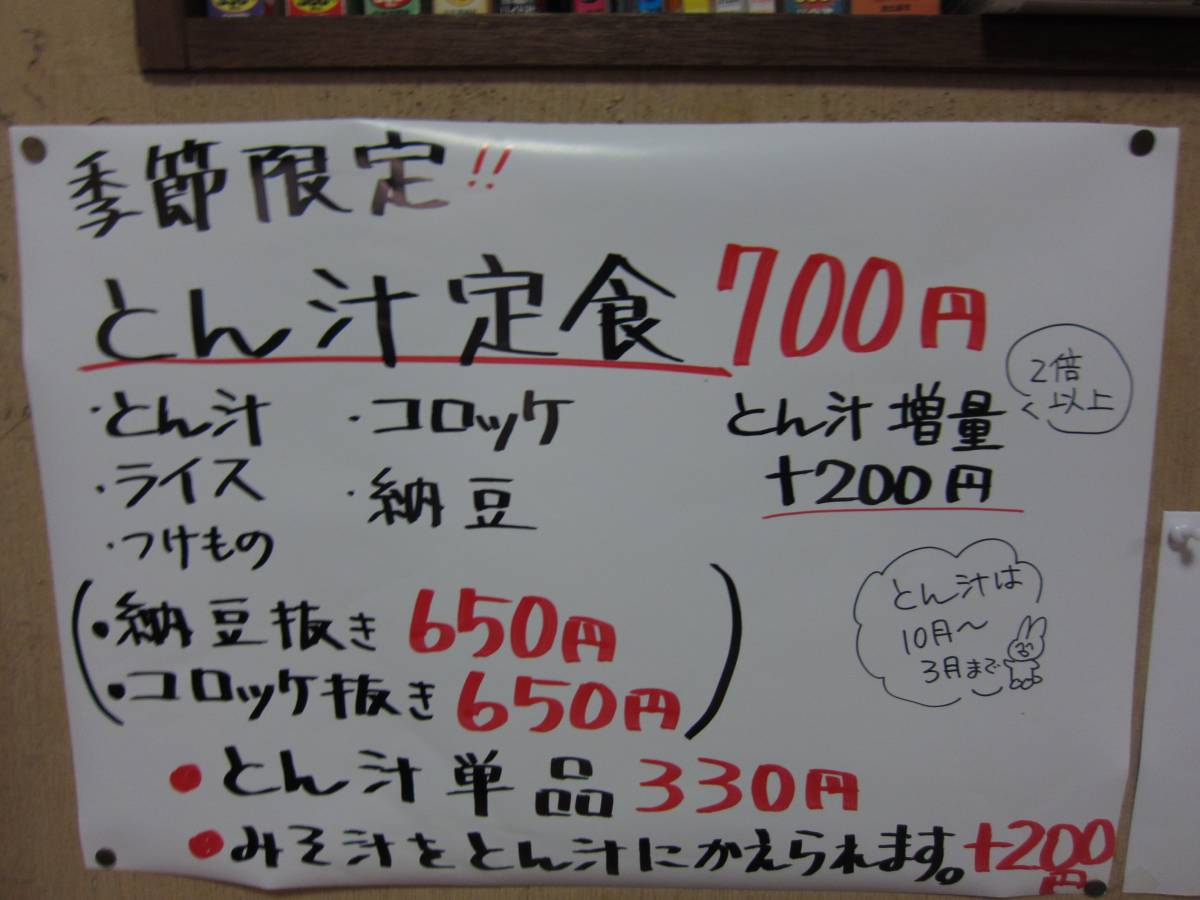 季節限定!!
とん汁定食 700円
・とん汁
・コロッケ
・ライス
・納豆
・つけもの
とん汁増量
+200円
2倍
以上
(・納豆抜き 650円
・コロッケ抜き 650円)
とん汁は
10月～
3月まで
・とん汁単品 330円
・みそ汁をとん汁にかえられます。+200円